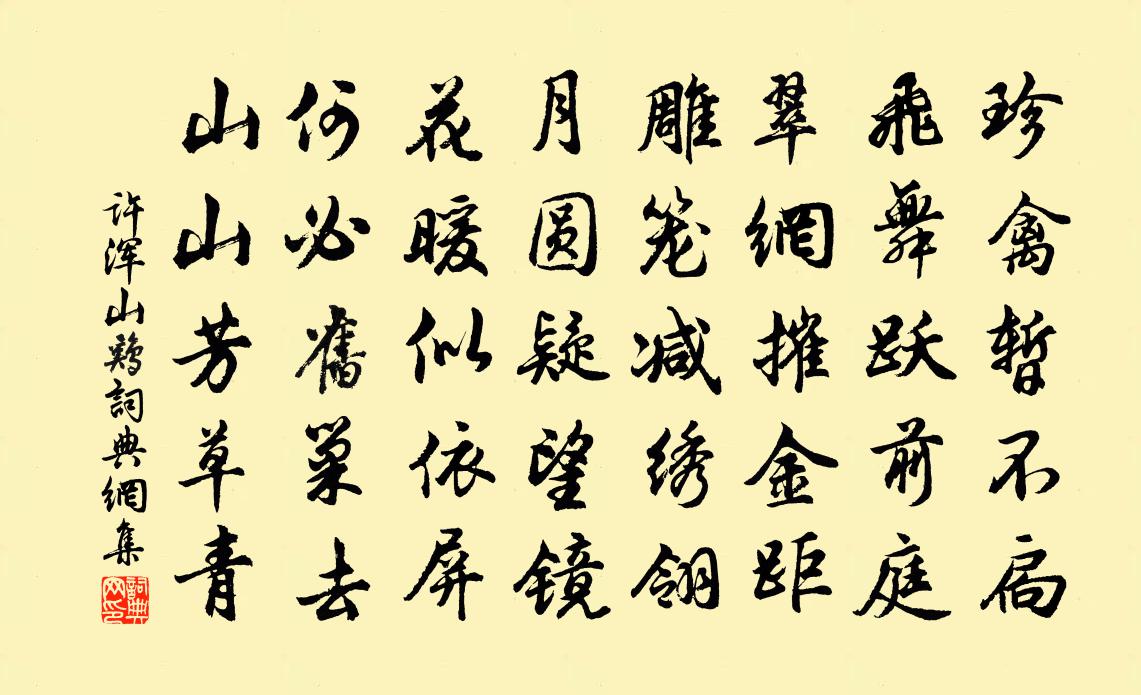 珍禽暂不扃
飛舞跃前庭
翠網摧金距
雕笼减绣翎
月圆疑望镜
花暖似依屏
何必舊巢去
山山芳草青
许浑山鷄詞典網集
詞典网印